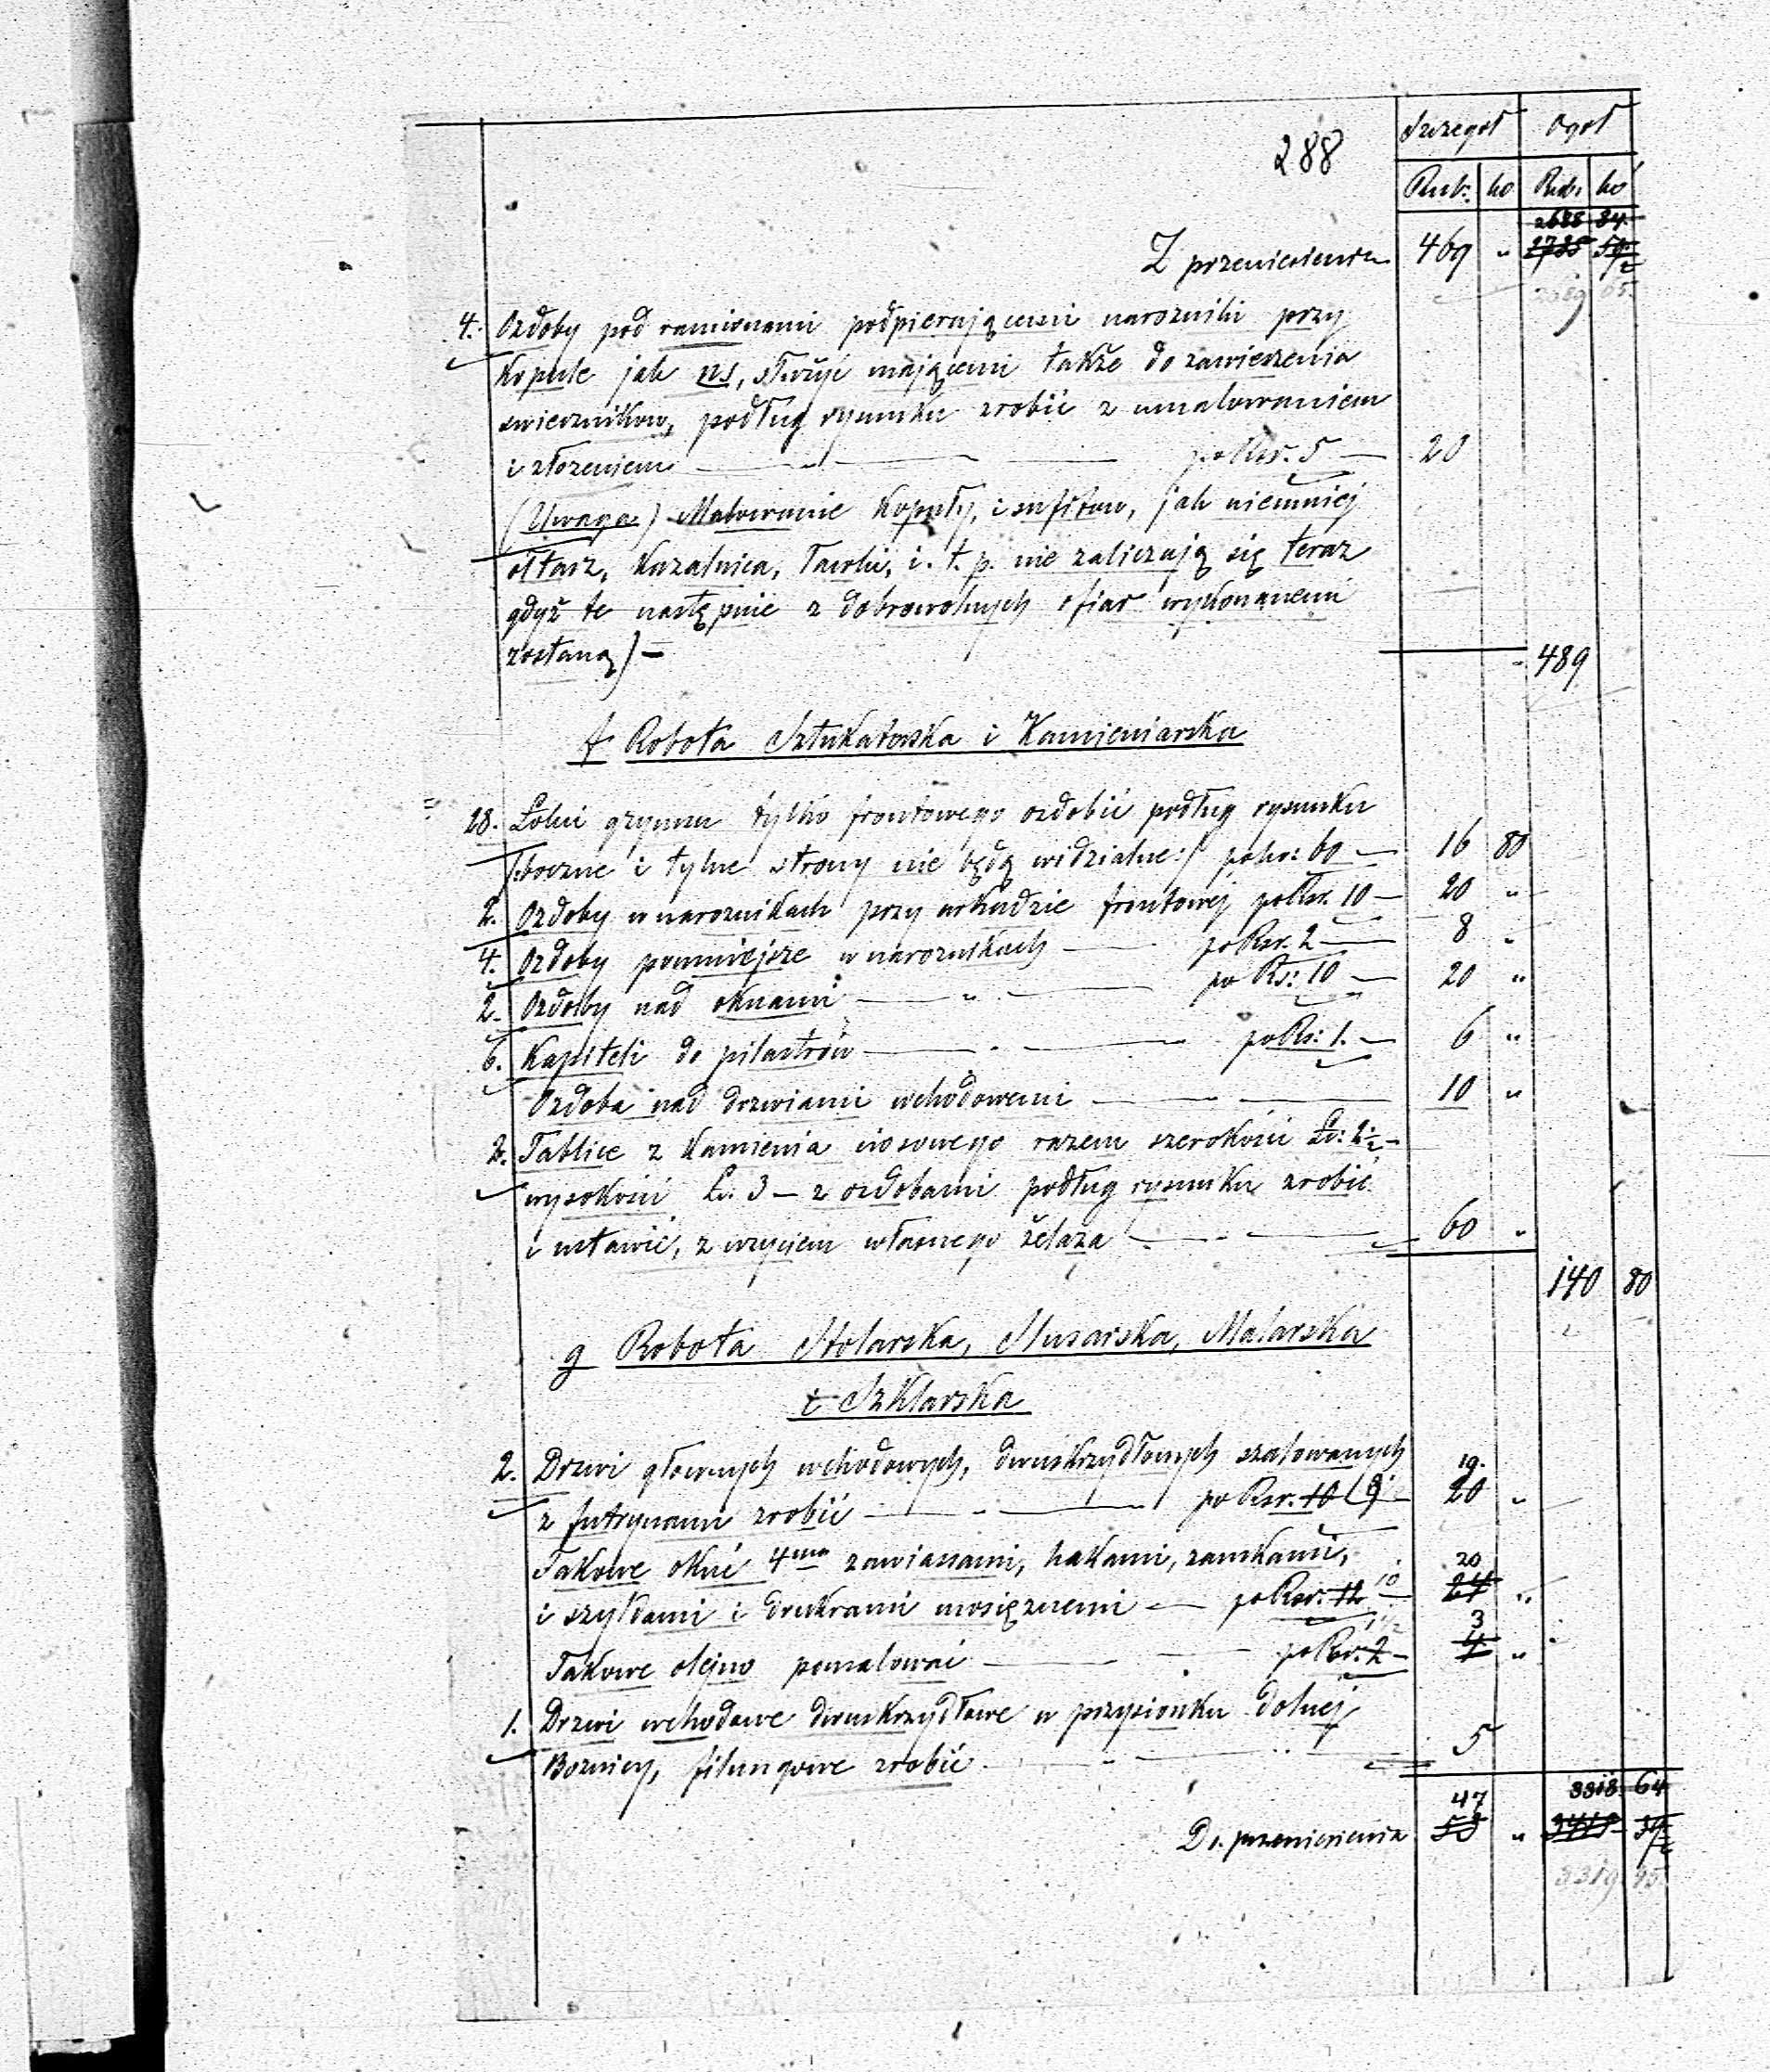 288
Szczegół Ogół
Rub: ko Rub: ko
2688 84.
Z przeniesienia 469 " 2785 59/2
2689 65.
4. Ozdoby pod ramionami podpierającemi narozniki przy
Kopule jak ns, służyć mającemi także do zawieszenia
swieczników, podług rysunku zrobić z umalowaniem
i złożeniem — " — po Rsr. 5 — 20
(Uwaga) Malowanie Kopuły, i sufitow, jak niemniej
ołtarz, Kazalnica, Ławki, i. t. p. nie zaliczają się teraz
gdyż te następnie z dobrowolnych ofiar wykonanemi
zostaną) — 489
f Robota Sztukatorska i Kamieniarska
28. Łokci gzymsu tylko frontowego ozdobić podług rysunku
/:boczne i tylne strony nie będą widzialne:/ po ko: 60 — 16 80
2. Ozdoby w naroznikach przy arkadzie frontowej po Rsr. 10 — 20 "
4. Ozdoby pomniejsze w naroznikach — po Rsr. 2 — 8 "
2. Ozdoby nad oknami — " — po Rs: 10 — 20 "
6. Kapiteli do pilastrów — " — po Rs: 1. — 6 "
Ozdoba nad drzwiami wchodowemi — " — 10 "
2. Tablice z Kamienia ciosowego razem szerokości Łc: 2½ —
wysokości Łc. 3 — z ozdobami podług rysunku zrobić
i wstawić, z użyciem własnego żelaza — " — 60 "
140 80
g Robota Stolarska, Slusarska, Malarska
i Szklarska
2. Drzwi głownych wchodowych, dwuskrzydłowych szalowanych 19.
z futrynami zrobić — " — po Rsr. 10 (9 — 20 "
Takowe okuć 4ma zawiasami, hakami, zamkami, 20
i szyldami i drukrami mosiężnemi — po Rsr. 12 10 — 24 "
1½ 3
Takowe olejno pomalować — " — po Rsr. 2 — 4 "
1. Drzwi wchodowe dwuskrzydłowe w przysionku dolnej
Boznicy, filungowe zrobić — " — 5
47 3318 64
Do przeniesienia 53 "
3319 45.